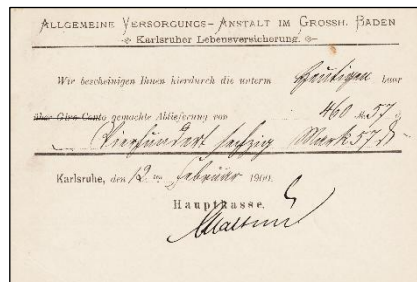 ALLGEMEINE VERSORGUNGS-ANSTALT IM GROSSH. BADEN
Karlsruher Lebensversicherung.
Wir bescheinigen Ihnen hierdurch die unterm heutigen baar
über Giro-Conto gemachte Ablieferung von 460 M. 57
Vierhundert sechzig Mark 57
Karlsruhe, den 12. Februar 1900.
Hauptkasse.